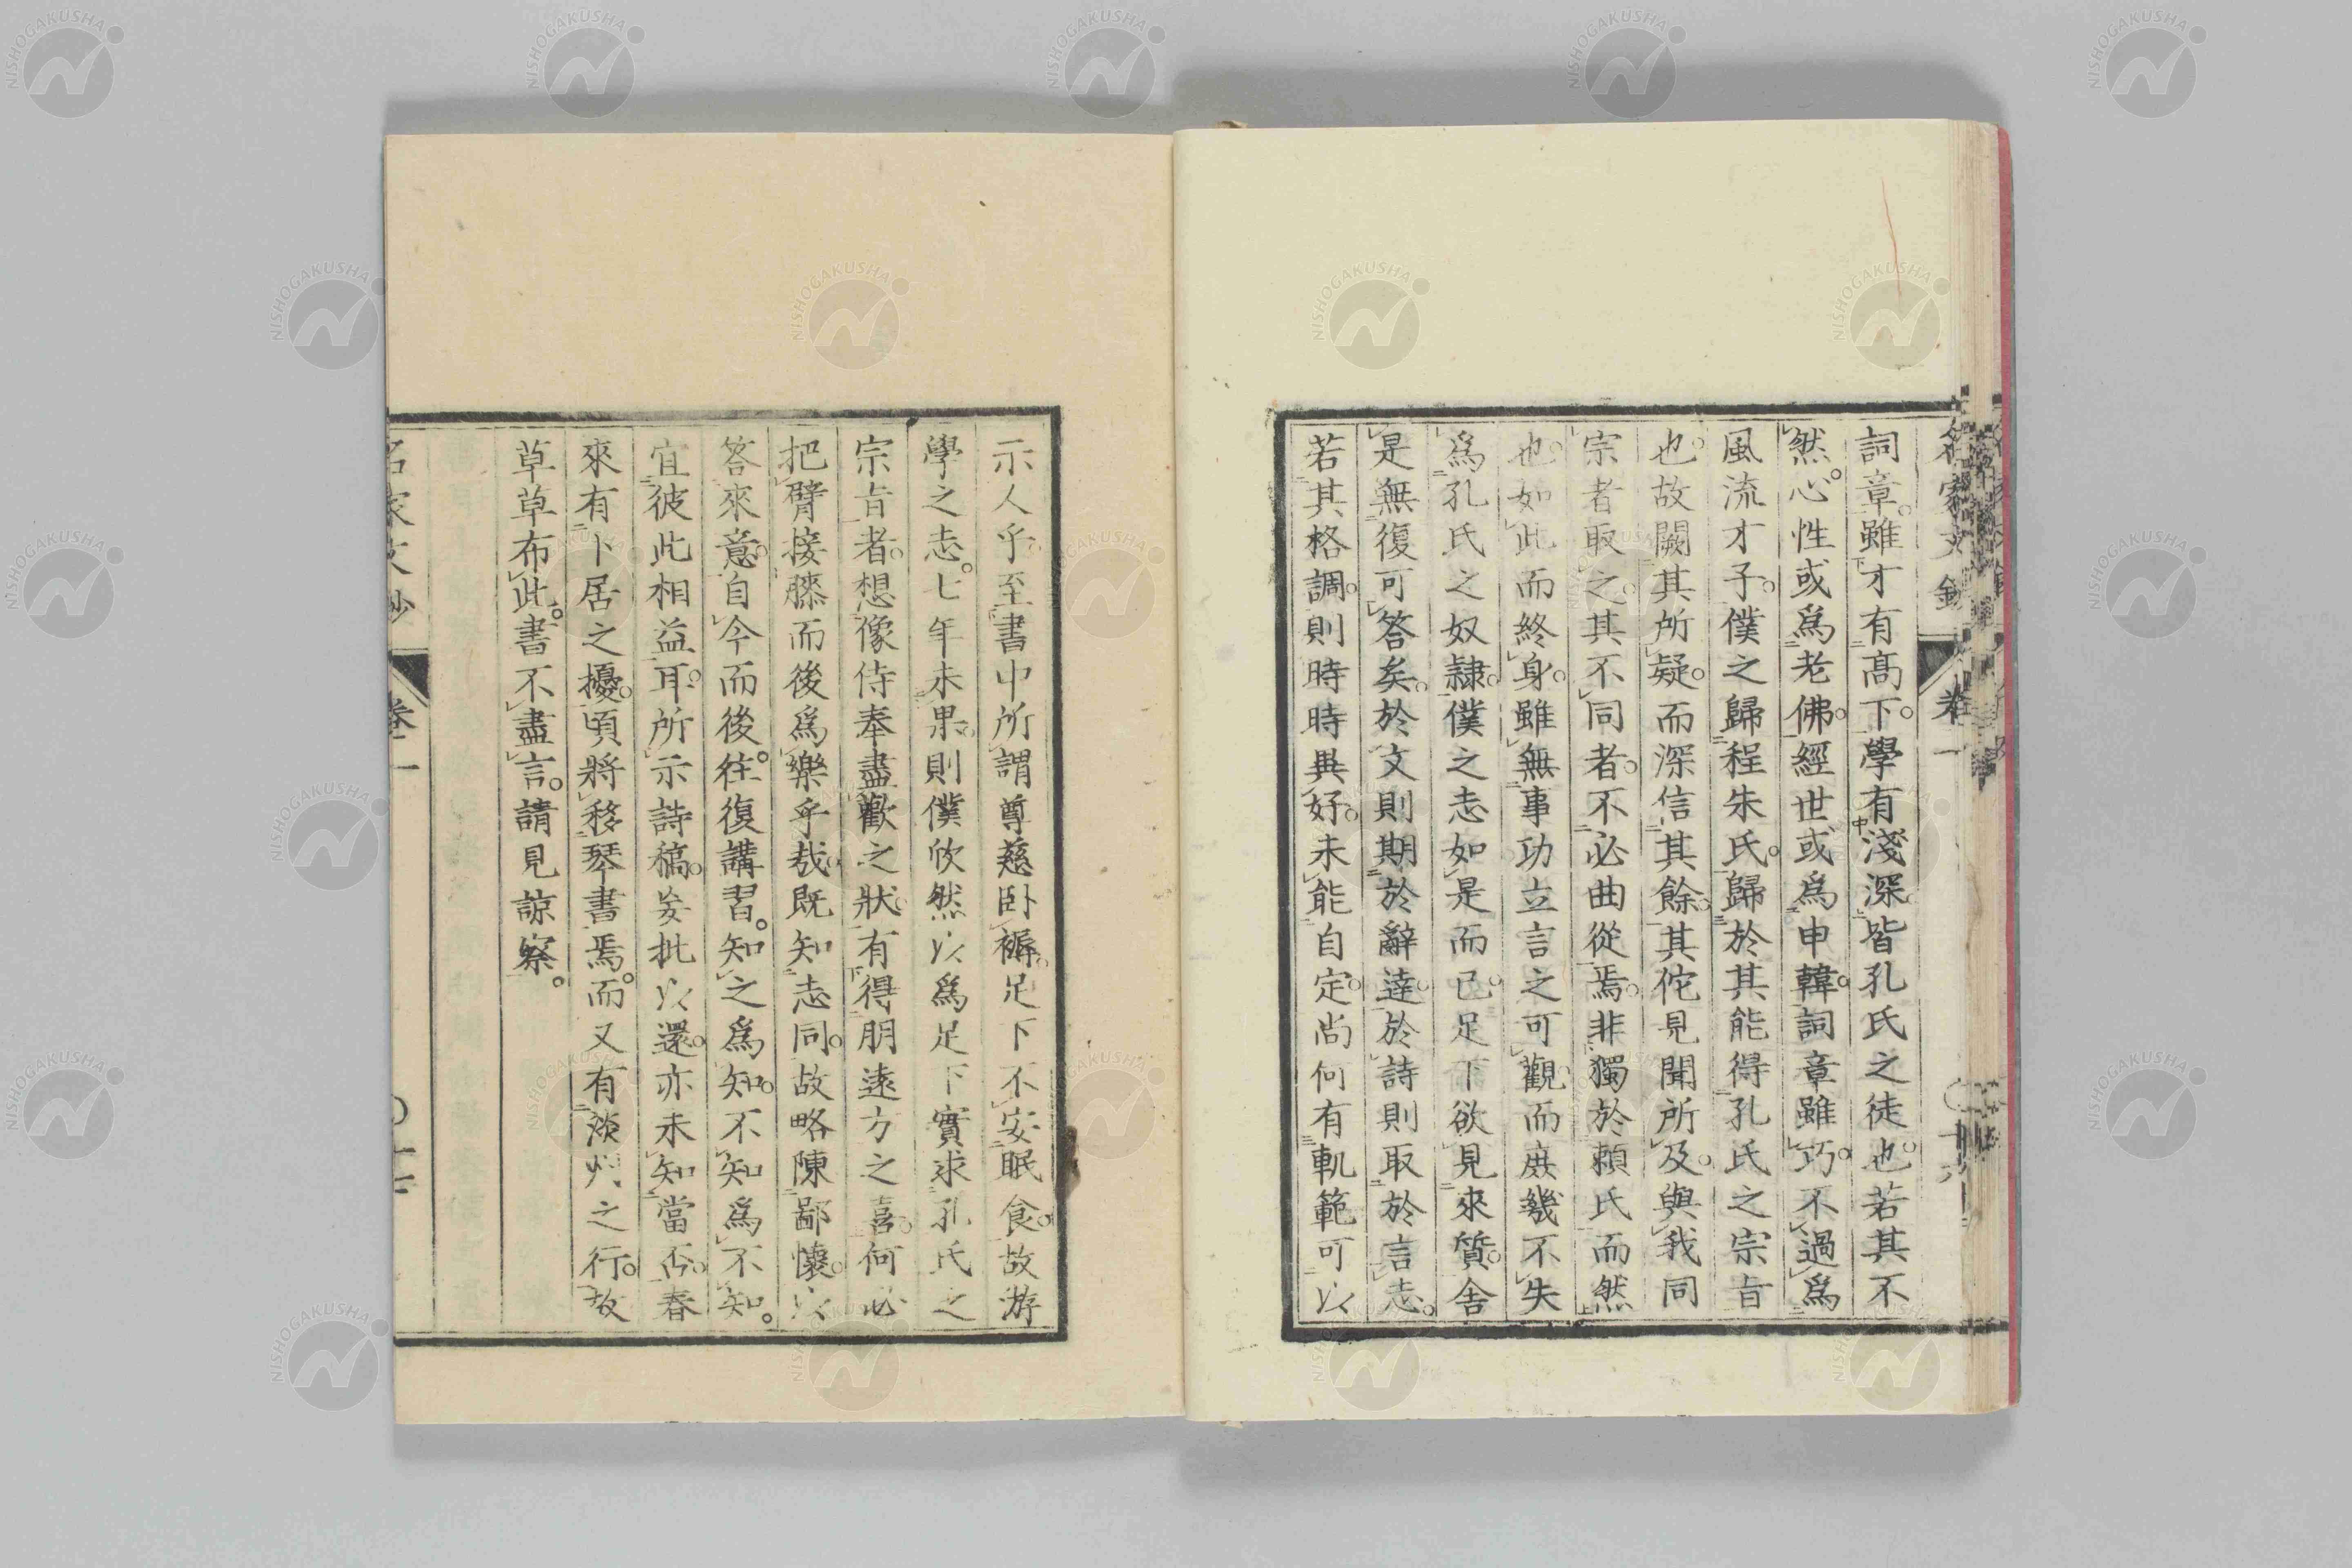 詞章。雖才有高下。學有淺深。皆孔氏之徒也。若其不
然。心性或爲老佛。經世或爲申韓。詞章雖巧。不過爲
風流才子。僕之歸程朱氏。歸於其能得孔氏之宗旨
也。故闕其所疑。而深信其餘。其佗見聞所及。與我同
宗者取之。其不同者。不必曲從焉。非獨於頼氏而然
也。如此而終身。雖無事功立言之可觀。而庶幾不失
爲孔氏之奴隷。僕之志如是而已。足下欲見來質。舍
是無復可答矣。於文則期於辭達。於詩則取於言志。
若其格調。則時時異好。未能自定。尚何有軌範可以
示人乎。至書中所謂尊慈臥褥。足下不安眠食。故游
學之志。七年未果。則僕欣然以爲足下實求孔氏之
宗旨者。想像侍奉盡歡之狀。有得朋遠方之喜。何必
把臂接膝而後爲樂乎哉。既知志同。故略陳鄙懷。以
答來意。自今而後。往復講習。知之爲知。不知爲不知。
宜彼此相益耳。所示詩稿。妄批以還。亦未知當否。春
來有卜居之擾。頃將移琴書焉。而又有淡州之行。故
草草布此。書不盡言。請見諒察。
名家文鈔
卷一
NISHOGAKUSHA